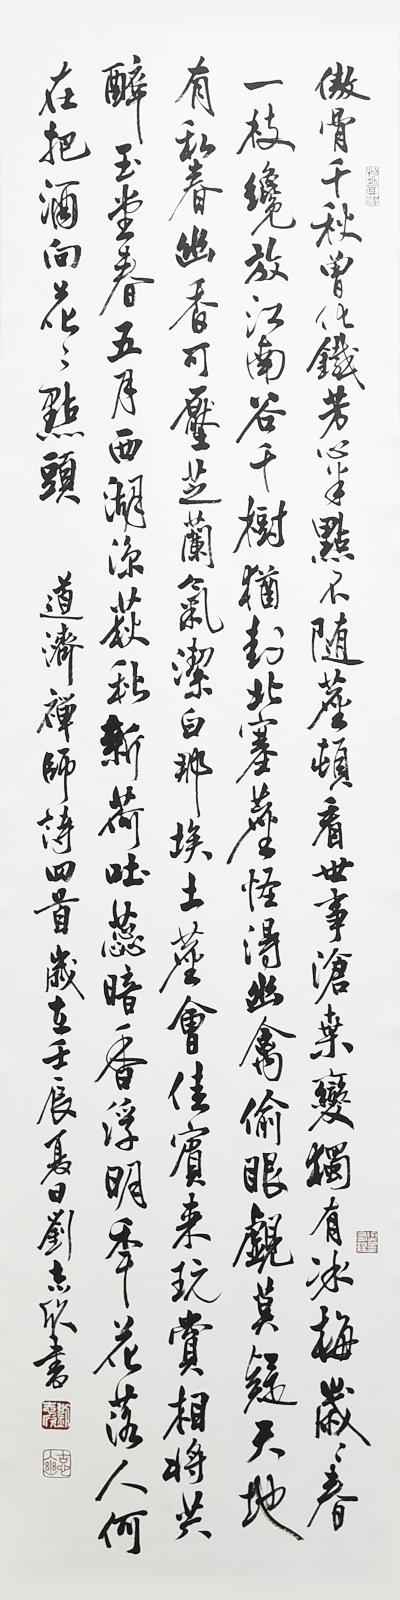 傲骨千秋曾化鐵芳心半點不随塵頓看世事滄桒變獨有冰梅歲〻春
一枝纔放江南谷千樹猶封北塞塵怪得幽禽偷眼覷莫疑天地
有私春幽香可壓芝蘭氣潔白那埃土塵會佳賓来玩賞相將共
醉玉堂春五月西湖涼荻秋新荷吐蕊暗香浮明年花落人何
在把酒向花〻點頭
道濟禪師詩四首歲在壬辰夏日劉志欣書